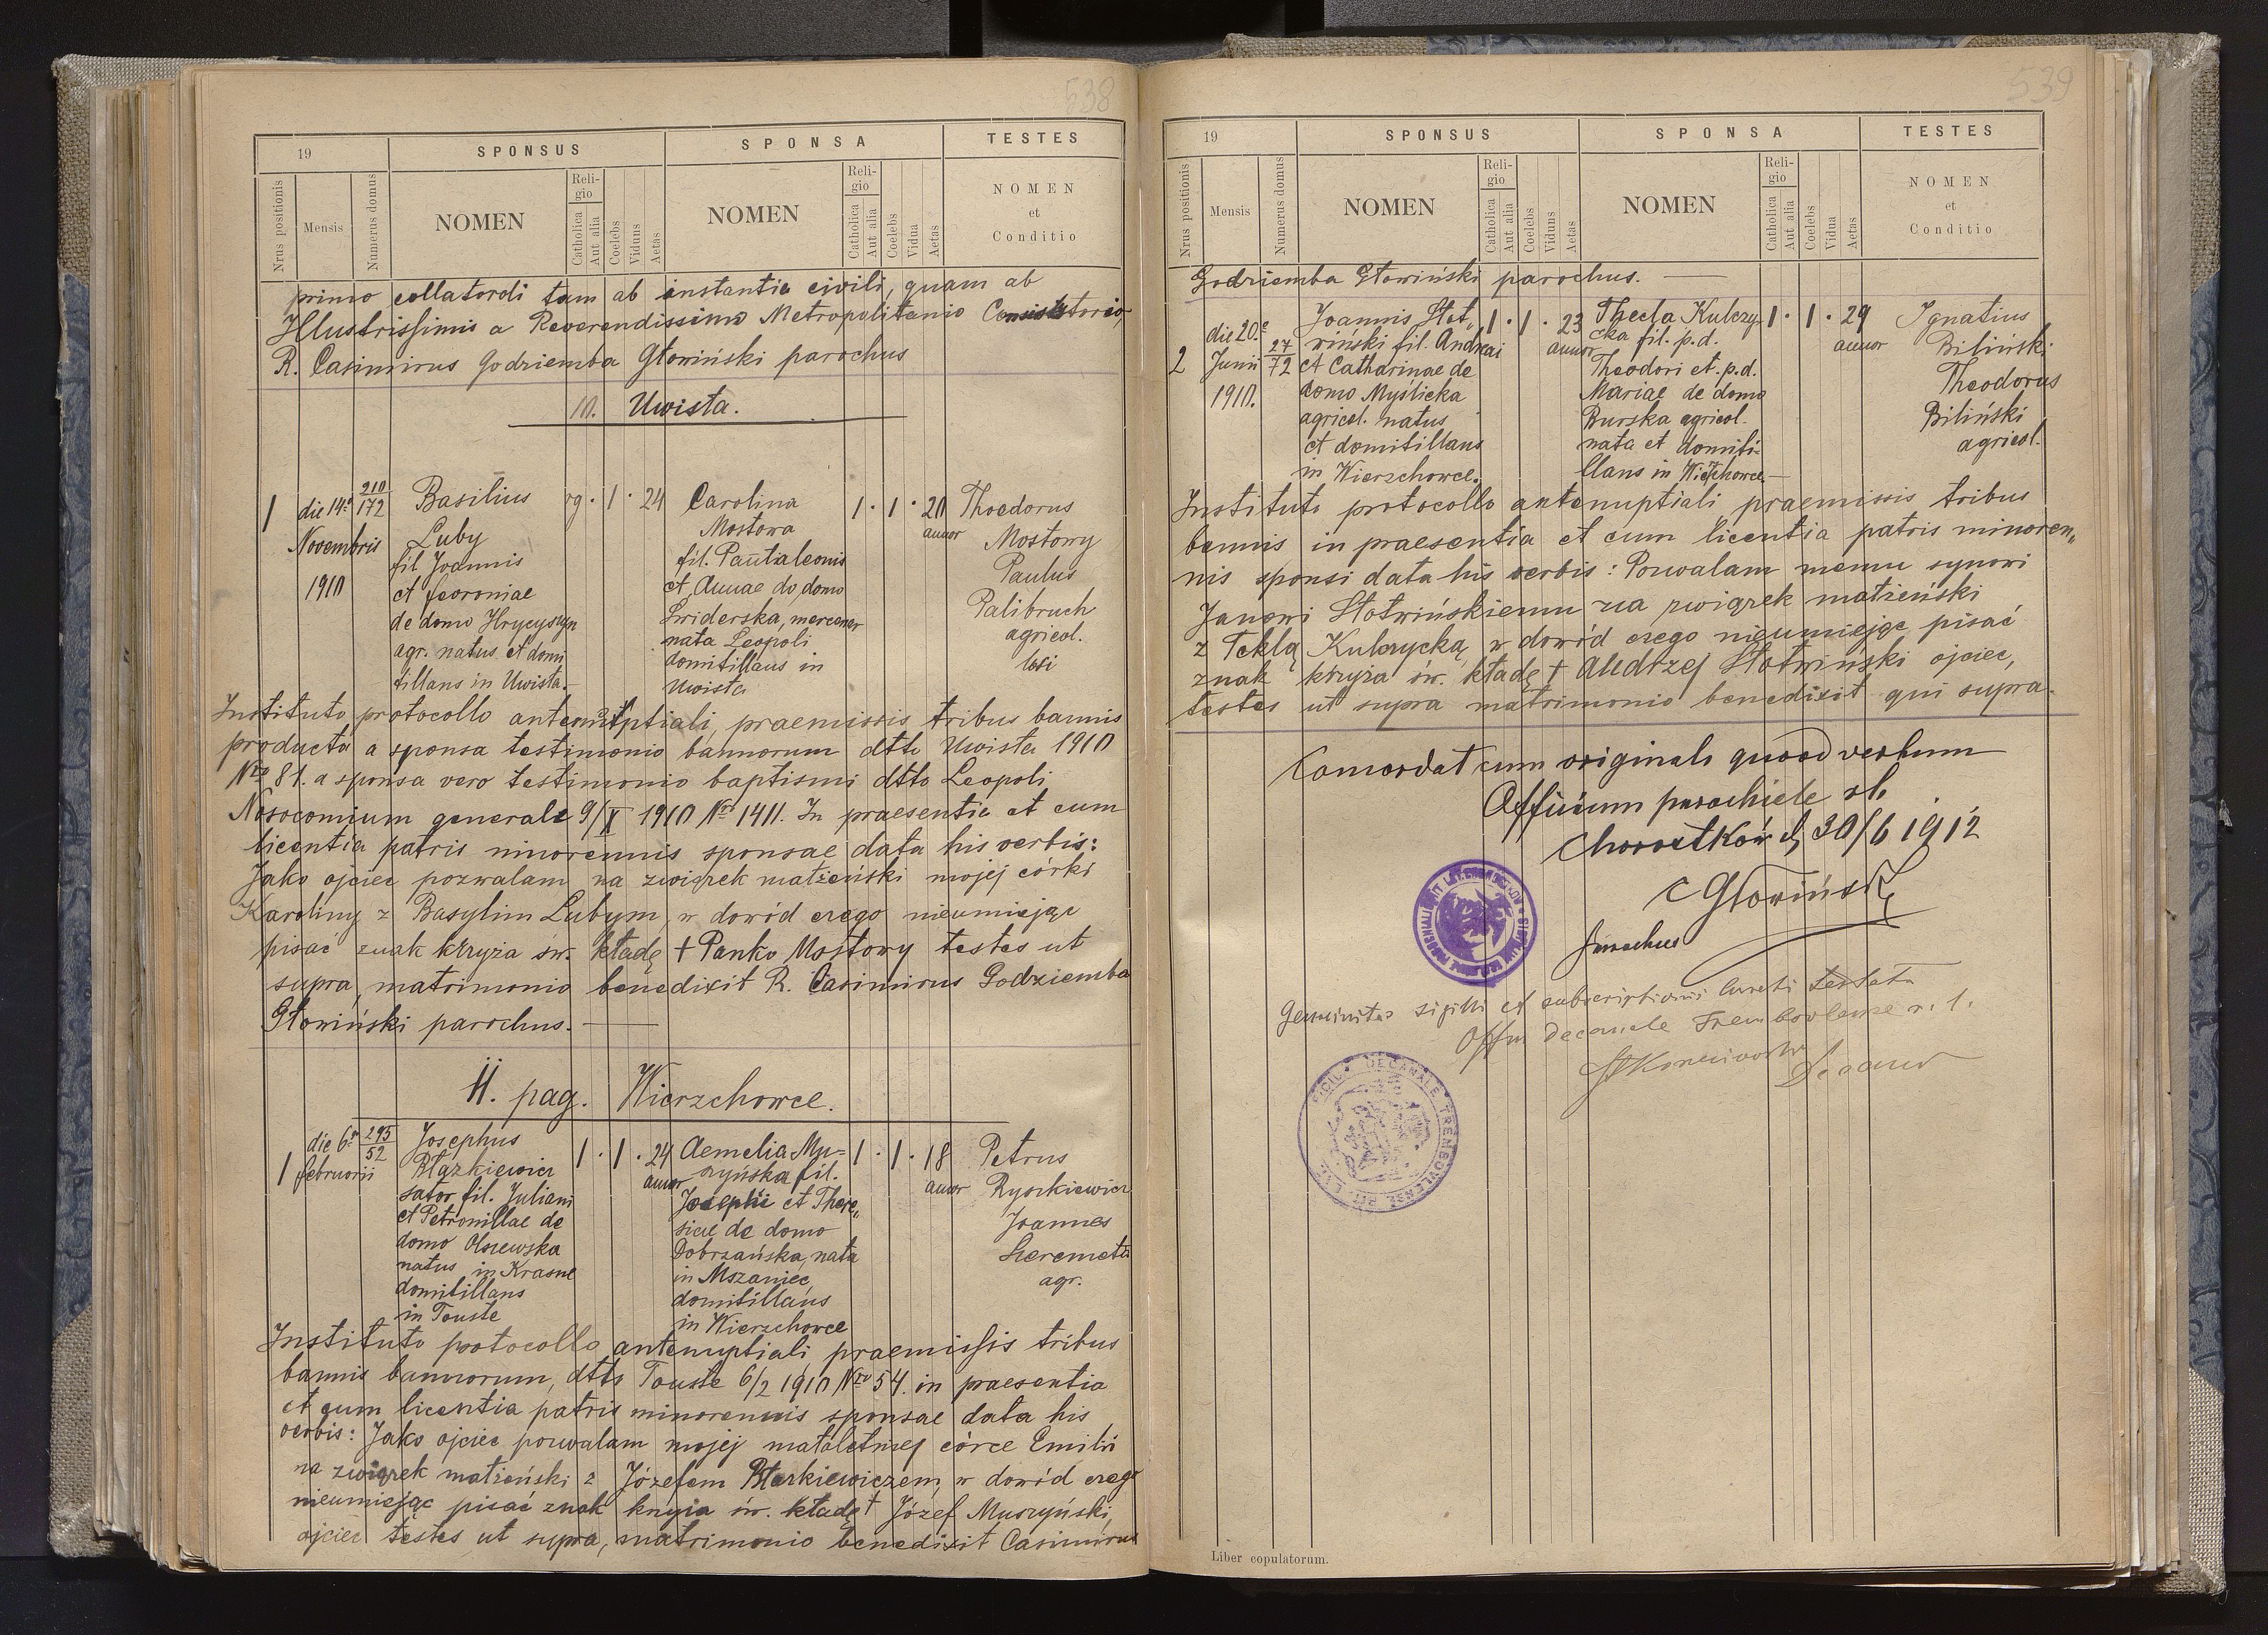 538
19
SPONSUS
SPONSA
TESTES
Nrus positionis
Mensis
Numerus domus
NOMEN
Religio
Catholica
Aut alia
Coelebs
Viduus
Aetas
NOMEN
Religio
Catholica
Aut alia
Coelebs
Vidua
Aetas
NOMEN
et
Conditio
primo collatordi tam ab instantia civili, quam ab
Illustrissimis a Reverendissimo Metropolitanio Consistorio,
R. Casimirus Godziemba Głowiński parochus
10. Uwista.
1
die 14a
Novembris
1910
210
172
Basilius
Luby
fil Joannis
et feoroniae
de domo Hrycyszyn
agr. natus et domi
tillans in Uwista.
rg. 1. 24
Carolina
Mostowa
fil. Pantaleonis
et Annae do domo
Świderska, mercener
nata Leopoli
domitillans in
Uwista
1. 1. 20
annor
Theodorus
Mostowy
Paulus
Palibruch
agricol.
loci
Instituto protocollo antenuptiali, praemissis tribus bannis
producta a sponsa testimonio bannorum dtto Uwista 1910
Nro 81. a sponsa vero testimonio baptismi dtto Leopoli
Nosocomium generale 9/X 1910 Nro 1411. In praesentia et cum
licentia patris minorennis sponsae data his verbis:
Jako ojciec pozwalam na związek małżeński mojej córki
Karoliny z Basylim Lubym, w dowód czego nieumiejąc
pisać znak krzyża św. kładę + Panko Mostowy testes ut
supra, matrimonio benedixit R. Casimirus Godziemba
Głowiński parochus.
11. pag. Wierzchowce.
1
die 6a
februarii
295
52
Josephus
Błazkiewicz
sator fil. Juliani
et Petronillae de
domo Olszewska
natus in Krasne
domitillans
in Touste
1. 1. 24
annor
Aemelia Mu-
szyńska fil.
Josephi et There,,
siae de domo
Dobrzańska, nata
in Mszaniec,
domitillans
in Wierzchowce
1. 1. 18
annor
Petrus
Ryszkiewicz
Joannes
Szeremeta
agr.
Instituto protocollo antenuptiali praemissis tribus
bannis bannorum, dtto Touste 6/2 1910 Nro 54. in praesentia
et cum licentia patris minorennis sponsae data his
verbis: Jako ojciec pozwalam mojej małoletniej córce Emilii
na związek małżeński z Józefem Błazkiewiczem, w dowód czego
nieumiejąc pisać znak krzyża św. kładę + Józef Muszyński,
ojciec testes ut supra, matrimonio benedixit Casimirus
539
19
SPONSUS
SPONSA
TESTES
Nrus positionis
Mensis
Numerus domus
NOMEN
Religio
Catholica
Aut alia
Coelebs
Viduus
Aetas
NOMEN
Religio
Catholica
Aut alia
Coelebs
Vidua
Aetas
NOMEN
et
Conditio
Godziemba Głowiński parochus.
2
die 20a
Junii
1910.
27
72
Joannis Słot,,
wiński fil. Andreai
et Catharinae de
domo Myślicka
agricol. natus
et domitillans
in Wierzchowce.
1. 1. 23
annor
Thecla Kulczy-
cka fil. p.d.
Theodori et. p.d.
Mariae de domo
Burska agricol.
nata et domiti-
llans in Wierzchowce
1. 1. 29
annor
Ignatius
Biliński
Theodorus
Biliński
agricol.
Instituto protocollo antenuptiali praemissis tribus
bannis in praesentia et cum licentia patris minoren,,
nis sponsi data his verbis: Pozwalam memu synowi
Janowi Słotwińskiemu na związek małżeński
z Teklą Kulczycką, w dowód czego nieumiejąc pisać
znak krzyża św. kładę + Andrzej Słotwiński ojciec,
testes ut supra matrimonio benedixit qui supra.
Concordat cum originali quoad verbum
Officium parochiale rl.
Chorostków d, 30/6 1912
C Głowiński
parochus
Genuinitas sigilli et subscriptionis Curati testatur
Offm Decanale Trembovlense r. l.
Decanus
OFFICIUM DECANALE TREMBOVLENSE RIT. LAT.
Liber copulatorum.